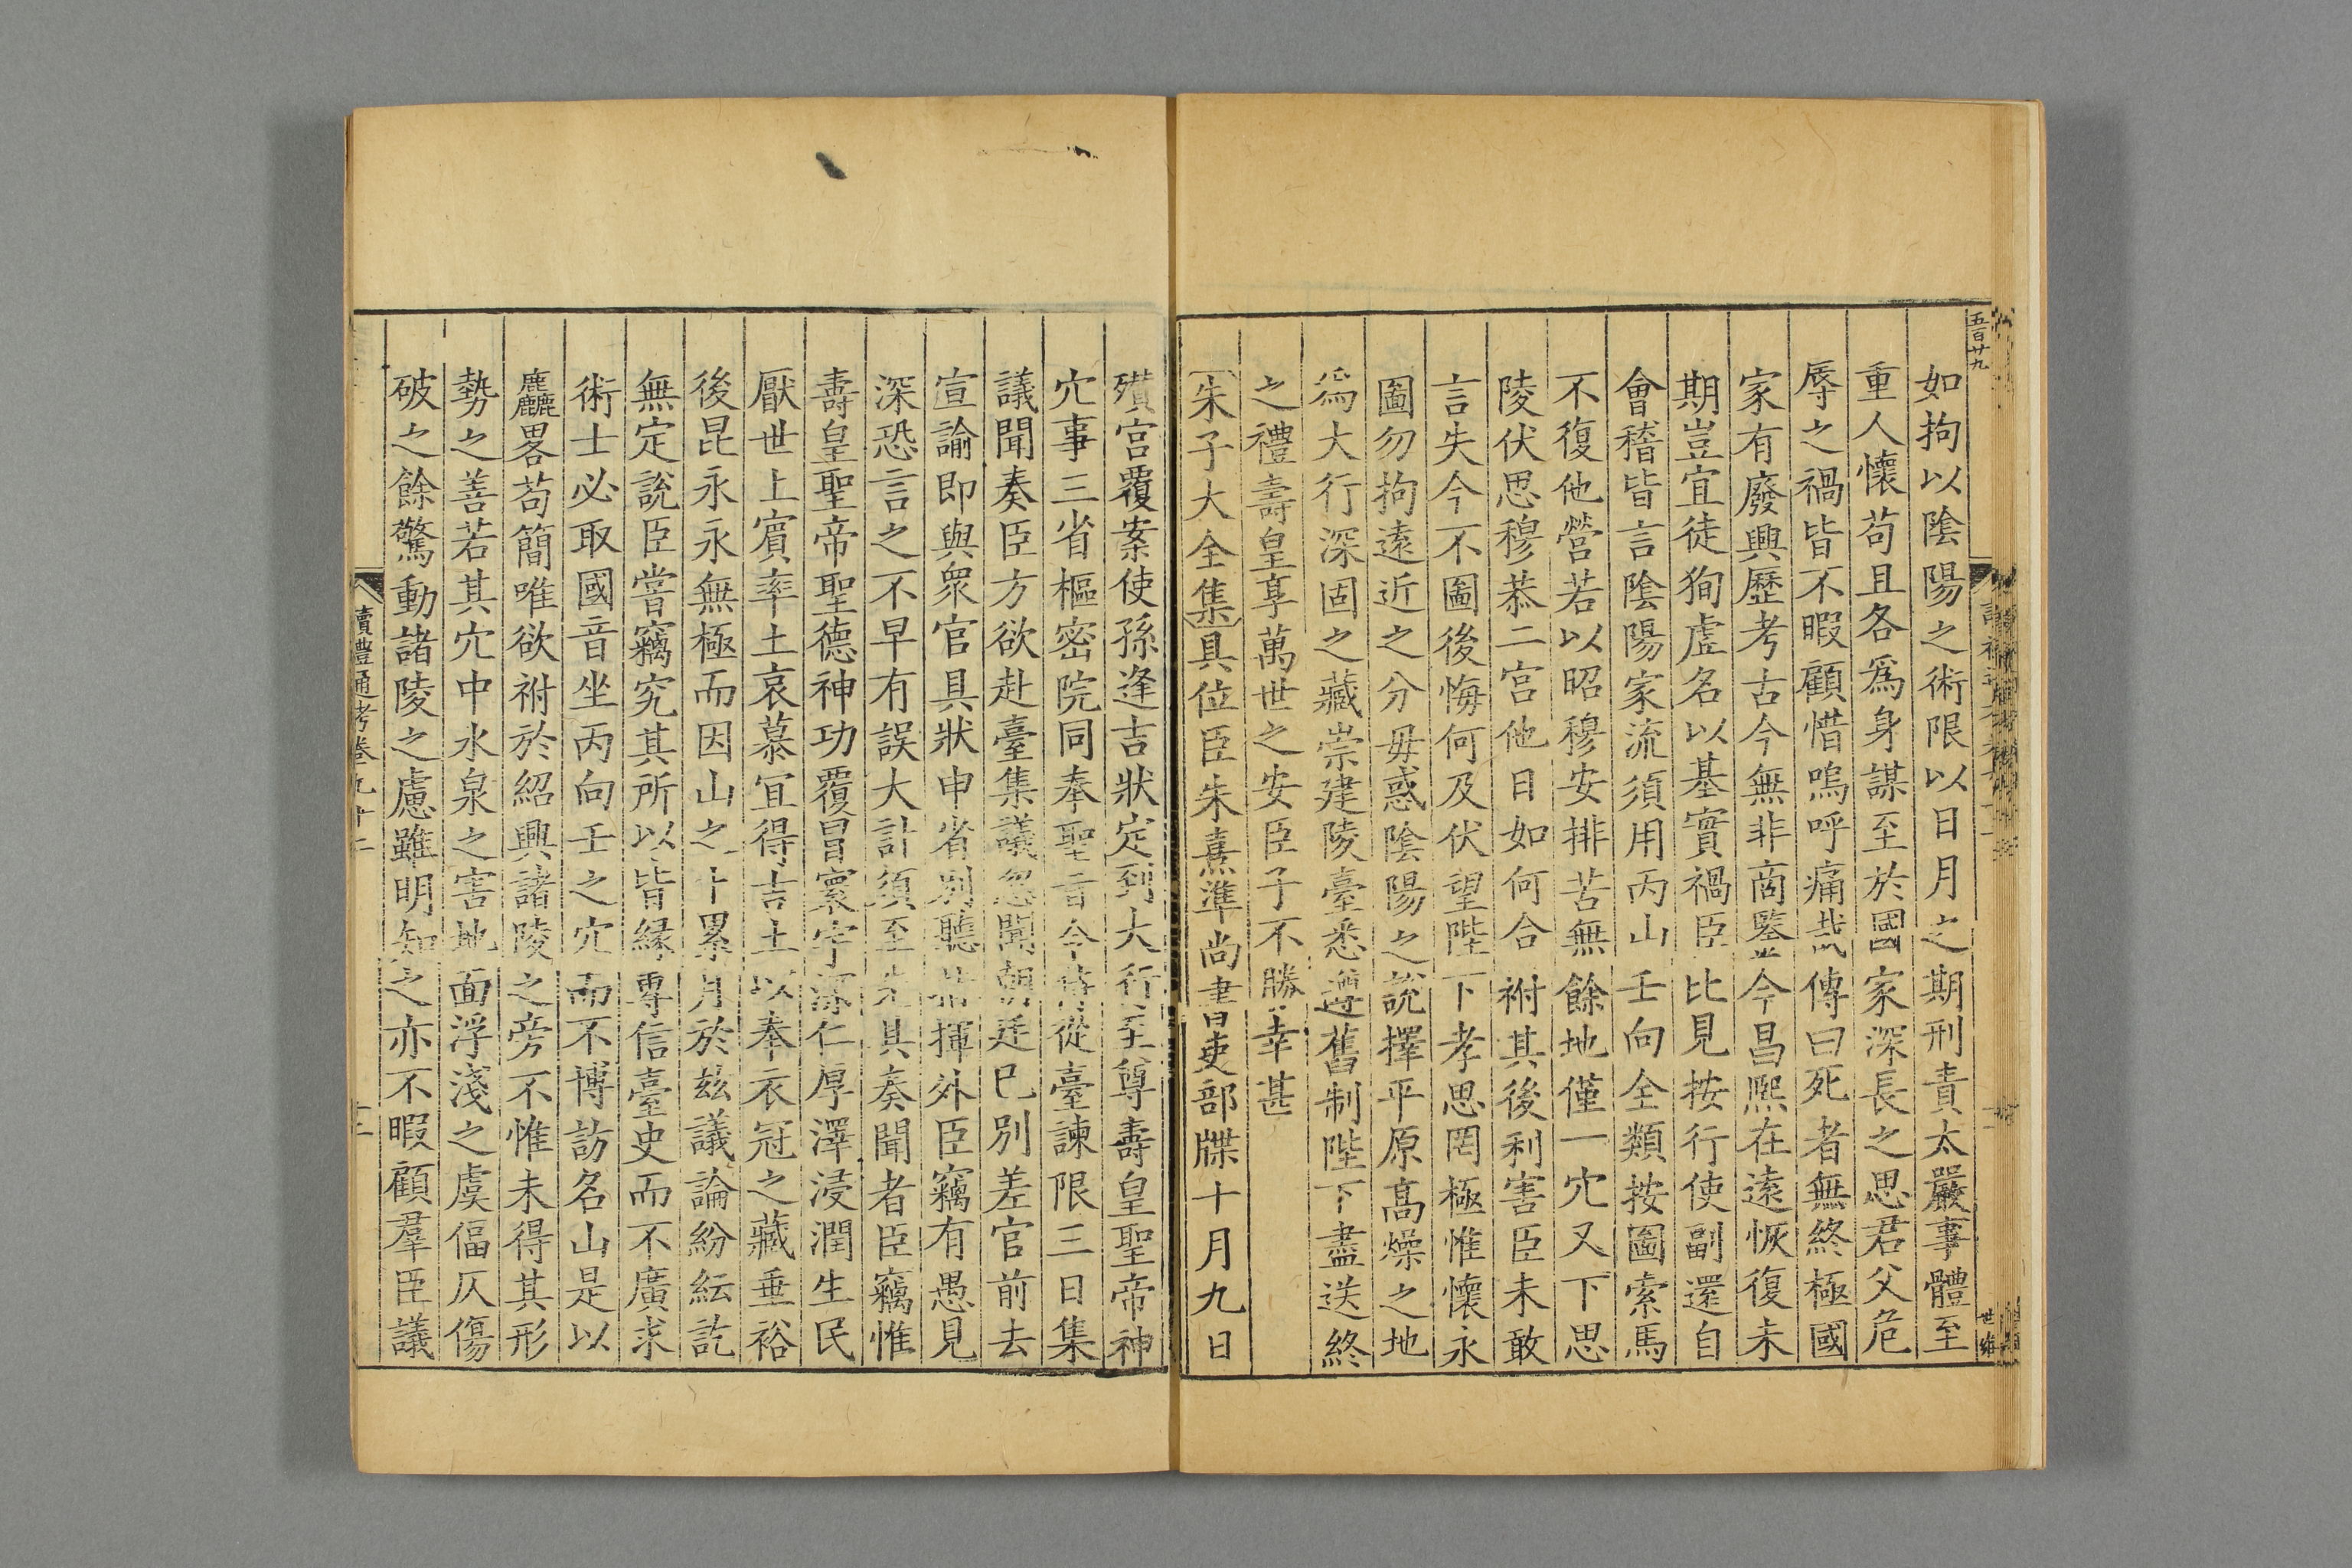 五百廿九
如拘以陰陽之術限以日月之期刑責太嚴事體至
重人懷苟且各爲身謀至於國家深長之思君父危
辱之禍皆不暇顧惜嗚呼痛哉傳曰死者無終極國
家有廢興歷考古今無非商鑒今昌熙在遠恢復未
期豈宜徒狥虛名以基實禍臣比見按行使副還自
會稽皆言陰陽家流須用丙山壬向全類按圖索馬
不復他營若以昭穆安排苦無餘地僅一穴又下思
陵伏思穆恭二宫他日如何合祔其後利害臣未敢
言失今不圖後悔何及伏望陛下孝思罔極惟懷永
圖勿拘遠近之分毋惑陰陽之說擇平原高燥之地
爲大行深固之藏崇建陵臺悉遵舊制陛下盡送終
之禮壽皇享萬世之安臣子不勝幸甚
朱子大全集具位臣朱熹準尚書吏部牒十月九日
殯宫覆案使孫逢吉狀定到大行至尊壽皇聖帝神
穴事三省樞密院同奉聖旨令侍從臺諫限三日集
議聞奏臣方欲赴臺集議忽聞朝廷已別差官前去
宣諭即與衆官具狀申省別聽指揮外臣竊有愚見
深恐言之不早有誤大計須至先具奏聞者臣竊惟
壽皇聖帝聖德神功覆冒寰宇深仁厚澤浸潤生民
厭世上賓率土哀慕宜得吉土以奉衣冠之藏垂裕
後昆永永無極而因山之卜累月於兹議論紛紜訖
無定說臣嘗竊究其所以皆縁專信臺史而不廣求
術士必取國音坐丙向壬之穴而不博訪名山是以
麤畧苟簡唯欲祔於紹興諸陵之旁不惟未得其形
勢之善若其穴中水泉之害地面浮淺之虞偪仄傷
破之餘驚動諸陵之慮雖明知之亦不暇顧羣臣議
讀禮通考卷九十二